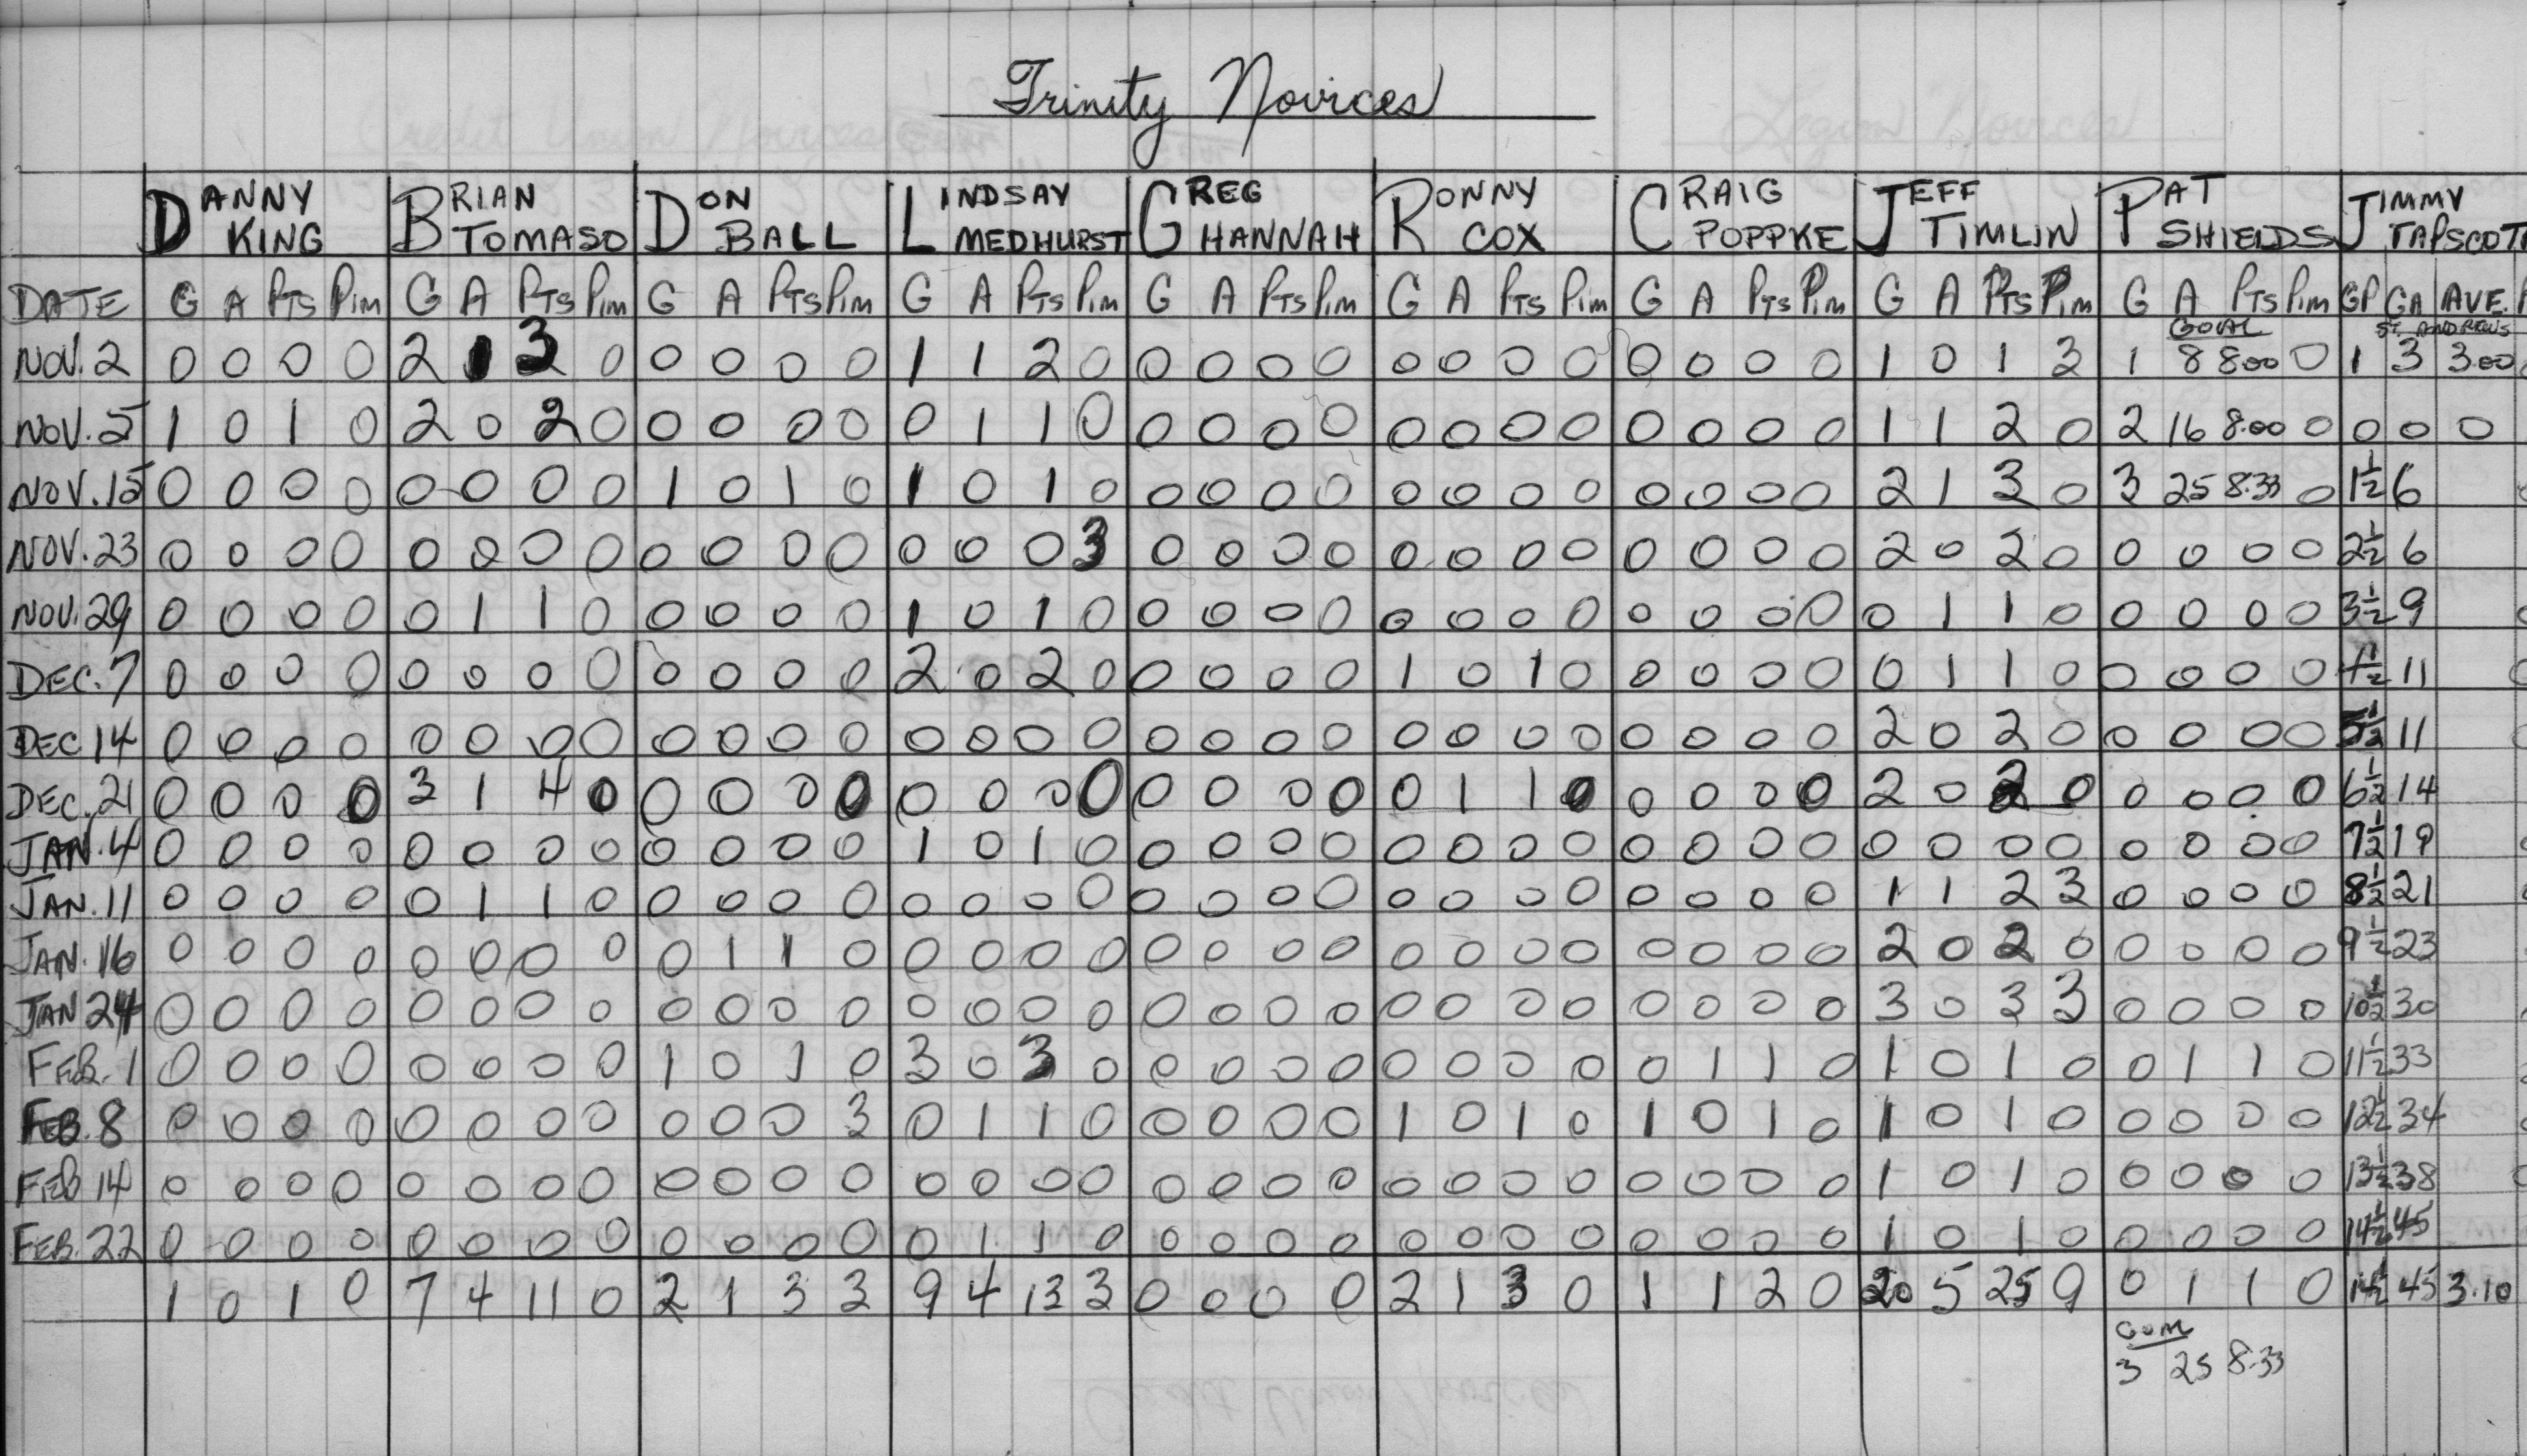 Trinity Novices
DANNY KING BRIAN TOMASO DON BALL LINDSAY MEDHURST GREG HANNAH RONNY COX CRAIG POPPKE JEFF TIMLIN PAT SHIELDS JIMMY TAPSCOTT
DATE G A PTS Pim G A PTS Pim G A PTS Pim G A PTS Pim G A PTS Pim G A PTS Pim G A PTS Pim G A PTS Pim G A PTS Pim GP GA AVE.
GOAL ST. ANDREWS
NOV. 2 0 0 0 0 2 1 3 0 0 0 0 0 1 1 2 0 0 0 0 0 0 0 0 0 0 0 0 0 1 0 1 3 1 8 8.00 0 1 3 3.00
NOV. 5 1 0 1 0 2 0 2 0 0 0 0 0 0 1 1 0 0 0 0 0 0 0 0 0 0 0 0 0 1 1 2 0 2 16 8.00 0 0 0 0
NOV. 15 0 0 0 0 0 0 0 0 1 0 1 0 1 0 1 0 0 0 0 0 0 0 0 0 0 0 0 0 2 1 3 0 3 25 8.33 0 1½ 6
NOV. 23 0 0 0 0 0 0 0 0 0 0 0 0 0 0 0 3 0 0 0 0 0 0 0 0 0 0 0 0 2 0 2 0 0 0 0 0 2½ 6
NOV. 29 0 0 0 0 0 1 1 0 0 0 0 0 1 0 1 0 0 0 0 0 0 0 0 0 0 0 0 0 0 1 1 0 0 0 0 0 3½ 9
DEC. 7 0 0 0 0 0 0 0 0 0 0 0 0 2 0 2 0 0 0 0 0 1 0 1 0 0 0 0 0 0 1 1 0 0 0 0 0 4½ 11
DEC 14 0 0 0 0 0 0 0 0 0 0 0 0 0 0 0 0 0 0 0 0 0 0 0 0 0 0 0 0 2 0 2 0 0 0 0 0 5½ 11
DEC. 21 0 0 0 0 3 1 4 0 0 0 0 0 0 0 0 0 0 0 0 0 0 1 1 0 0 0 0 0 2 0 2 0 0 0 0 0 6½ 14
JAN. 4 0 0 0 0 0 0 0 0 0 0 0 0 1 0 1 0 0 0 0 0 0 0 0 0 0 0 0 0 0 0 0 0 0 0 0 0 7½ 19
JAN. 11 0 0 0 0 0 1 1 0 0 0 0 0 0 0 0 0 0 0 0 0 0 0 0 0 0 0 0 0 1 1 2 3 0 0 0 0 8½ 21
JAN. 16 0 0 0 0 0 0 0 0 0 1 1 0 0 0 0 0 0 0 0 0 0 0 0 0 0 0 0 0 2 0 2 0 0 0 0 0 9½ 23
JAN 24 0 0 0 0 0 0 0 0 0 0 0 0 0 0 0 0 0 0 0 0 0 0 0 0 0 0 0 0 3 0 3 3 0 0 0 0 10½ 30
FEB. 1 0 0 0 0 0 0 0 0 1 0 1 0 3 0 3 0 0 0 0 0 0 0 0 0 0 1 1 0 1 0 1 0 0 1 1 0 11½ 33
FEB. 8 0 0 0 0 0 0 0 0 0 0 0 3 0 1 1 0 0 0 0 0 1 0 1 0 1 0 1 0 1 0 1 0 0 0 0 0 12½ 34
FEB 14 0 0 0 0 0 0 0 0 0 0 0 0 0 0 0 0 0 0 0 0 0 0 0 0 0 0 0 0 1 0 1 0 0 0 0 0 13½ 38
FEB. 22 0 0 0 0 0 0 0 0 0 0 0 0 0 1 1 0 0 0 0 0 0 0 0 0 0 0 0 0 1 0 1 0 0 0 0 0 14½ 45
1 0 1 0 7 4 11 0 2 1 3 3 9 4 13 3 0 0 0 0 2 1 3 0 1 1 2 0 20 5 25 9 0 1 1 0 14½ 45 3.10
3 25 8.33